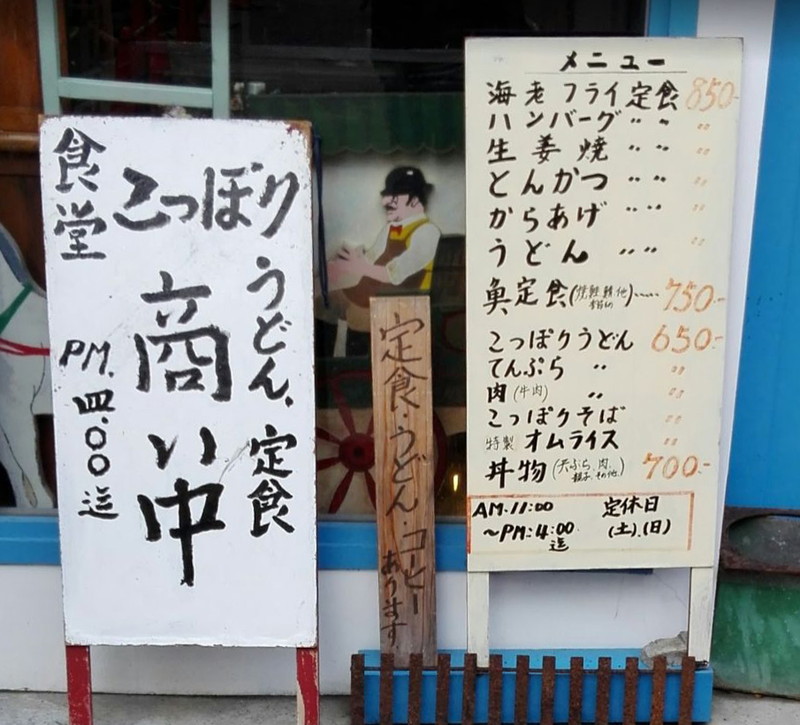 食堂
こっぽり
うどん、定食
商い中
PM.四.00迄
定食・うどん・コーヒー
あります
メニュー
海老フライ定食 850-
ハンバーグ 〃 〃 〃
生姜焼 〃 〃 〃
とんかつ 〃 〃 〃
からあげ 〃 〃 〃
うどん 〃 〃 〃
魚定食 750-
こっぽりうどん 650-
てんぷら 〃 〃
肉(牛肉) 〃 〃
こっぽりそば 〃
特製 オムライス 〃
丼物(天ぷら、肉、玉子、その他) 700-
AM.11:00
~PM:4:00
迄
定休日
(土).(日)